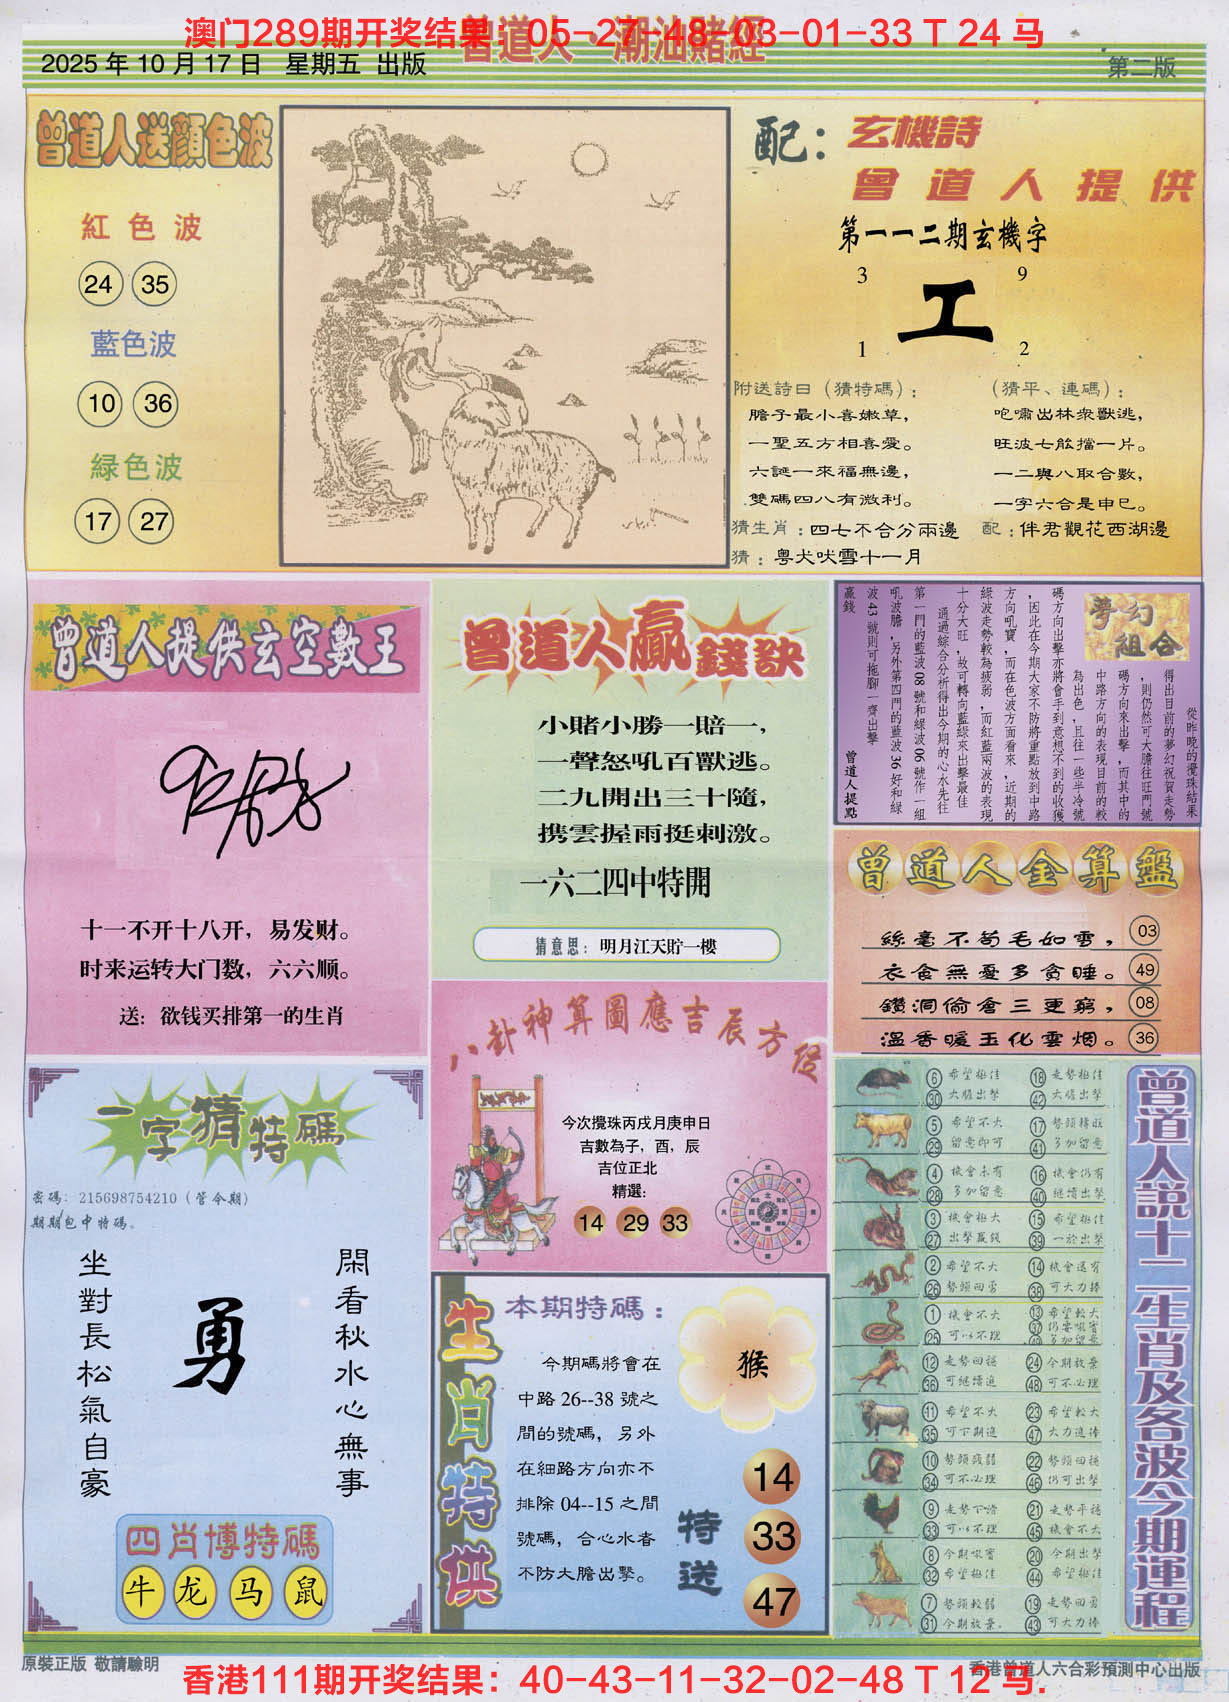 澳门289期开奖结果：05-27-48-03-01-33 T 24 马
曾道人·潮汕賭經
2025 年 10 月 17 日 星期五 出版
第二版
曾道人送顏色波
紅色波
24 35
藍色波
10 36
緑色波
17 27
配：玄機詩
曾道人提供
第一一二期玄機字
3 9
工
1 2
附送詩曰（猜特碼）：
膽子最小喜嫩草，
一聖五方相喜愛。
六誕一來福無邊，
雙碼四八有微利。
（猜平、連碼）：
咆嘯出林衆獸逃，
旺波七舩擋一片。
一二與八取合數，
一字六合是申巳。
猜生肖：四七不合分兩邊
配：伴君觀花西湖邊
猜：粤犬吠雪十一月
曾道人提供玄空數王
十一不开十八开，易发财。
时来运转大门数，六六顺。
送：欲钱买排第一的生肖
曾道人贏錢訣
小賭小勝一賠一，
一聲怒吼百獸逃。
二九開出三十隨，
携雲握雨挺刺激。
一六二四中特開
猜意思：明月江天貯一樓
夢幻組合
從昨晚的攪珠結果
得出目前的夢幻祝賀走勢
，則仍然可大膽往旺門號
碼方向來出擊，而其中的
中路方向的表現目前的較
為出色，且往一些半冷號
碼方向出擊亦將會手到意想不到的收獲
，因此在今期大家不防將重點放到中路
方向吼寶，而在色波方面看來，近期的
綠波走勢較為疲弱，而紅藍兩波的表現
十分大旺，故可轉向藍綠來出擊最佳
通過綜合分析得出今期的心水先往
第一門的藍波 08 號和綠波 06 號作一組
吼波膽，另外第四門的藍波 36 好和綠
波 43 號則可拖腳一齊出擊
贏錢
曾道人提點
曾道人金算盤
絲毫不苟毛如雪， 03
衣食無憂多貪睡。 49
鑽洞偷倉三更窮， 08
溫香暖玉化雲烟。 36
八卦神算圖應吉辰方位
今次攪珠丙戌月庚申日
吉數為子，酉，辰
吉位正北
精選：
14 29 33
一字猜特碼
密碼：215698754210（管令期）
期期包中特碼。
閑看秋水心無事
勇
坐對長松氣自豪
四肖博特碼
牛 龙 马 鼠
生肖特供
本期特碼：
今期碼將會在
中路 26--38 號之
間的號碼，另外
在細路方向亦不
排除 04--15 之間
號碼，合心水者
不防大膽出擊。
猴
特送
14
33
47
曾道人説十二生肖及各波今期運程
6 希望極佳 18 走勢極佳
30 大膽出擊 42 大膽出擊
5 希望不大 17 勢頭轉旺
29 留意即可 41 多加留意
4 機會未有 16 機會仍有
28 多加留意 40 繼續出擊
3 機會極大 15 希望極佳
27 出擊贏錢 39 一於出擊
2 希望不大 14 機會還有
26 勢頭回勇 38 可大力捧
1 機會不大 13 希望較大
25 可以不理 37 仍要吼寶
49 多加留意
12 走勢回穩 24 今期放棄
36 可繼續追 48 可不必理
11 希望不大 23 希望較大
35 可下期追 47 大力追捧
10 勢頭疲弱 22 勢頭回穩
34 可不必理 46 仍可出擊
9 走勢下滑 21 走勢平穩
33 可以不理 45 機會不大
8 今期吼寶 20 今期出擊
32 希望極佳 44 希望極佳
7 勢頭較弱 19 走勢回勇
31 今期放棄。 43 可大力捧
原裝正版 敬請驗明
香港曾道人六合彩預測中心出版
香港111期开奖结果：40-43-11-32-02-48 T 12 马.